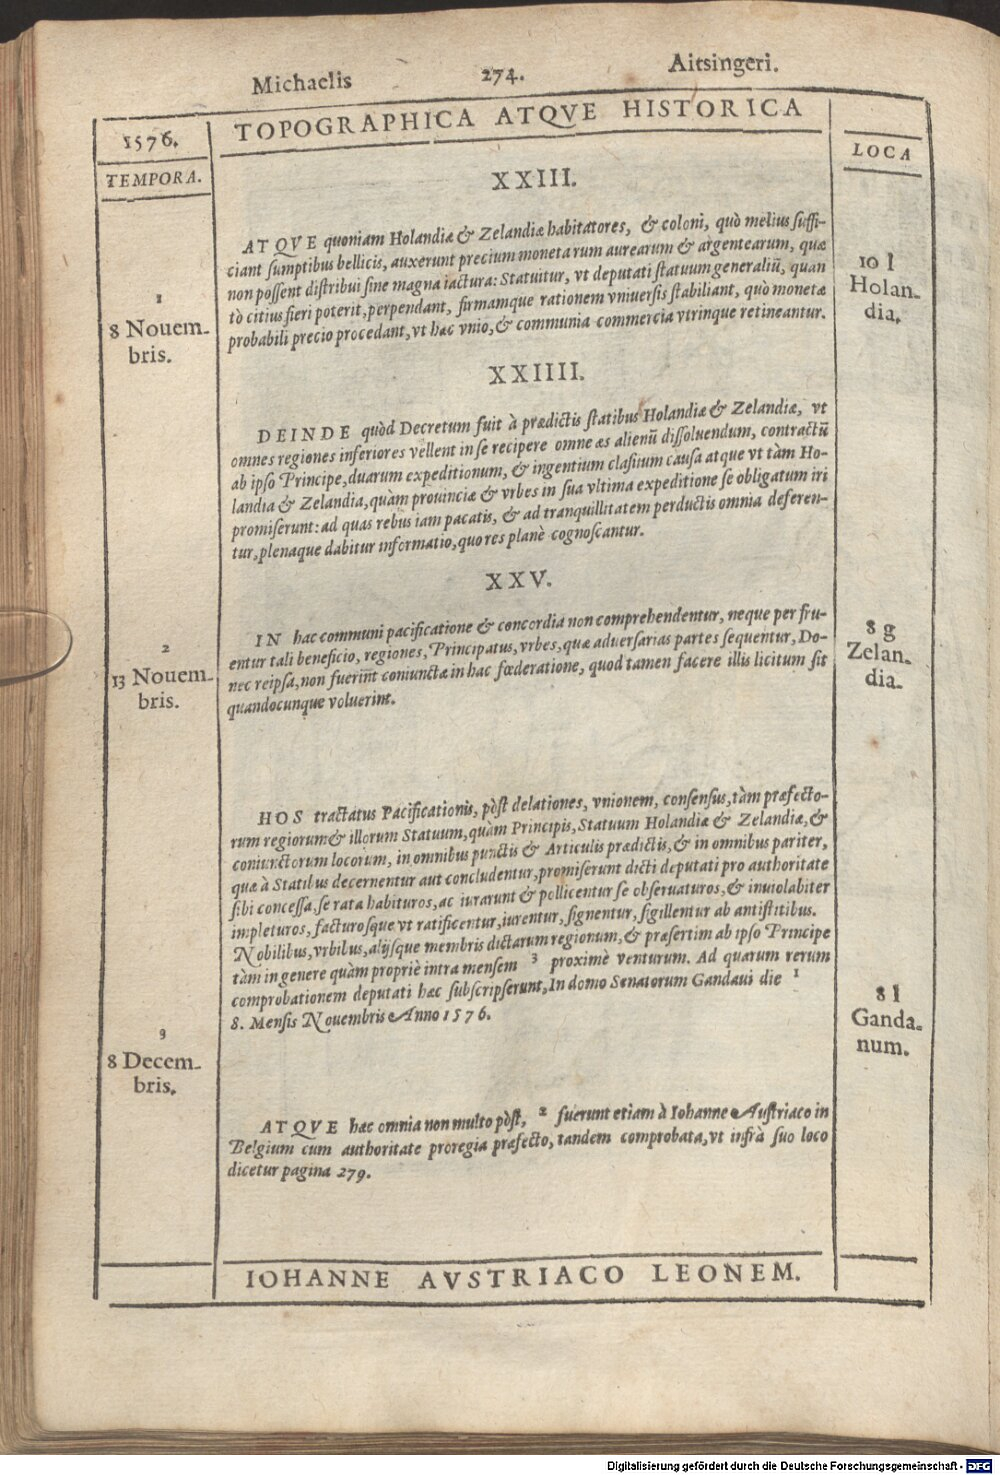 Michaelis 274. Aitsingeri.
1576. TOPOGRAPHICA ATQVE HISTORICA LOCA
TEMPORA.
XXIII.
ATQVE quoniam Holandiæ & Zelandiæ habitatores, & coloni, quò melius suffi-
ciant sumptibus bellicis, auxerunt precium monetarum aurearum & argentearum, quæ
non possent distribui sine magna iactura: Statuitur, vt deputati statuum generaliũ, quan
tò citius fieri poterit, perpendant, firmamque rationem vniuersis stabiliant, quò monetæ
probabili precio procedant, vt hac vnio, & communia commercia vtrinque retineantur.
1
8 Nouem-
bris.
10 l
Holan-
dia.
XXIIII.
DEINDE quòd Decretum fuit à prædictis statibus Holandiæ & Zelandiæ, vt
omnes regiones inferiores vellent in se recipere omne æs alienũ dissoluendum, contractũ
ab ipso Principe, duarum expeditionum, & ingentium classium causa atque vt tàm Ho-
landia & Zelandia, quàm prouinciæ & vrbes in sua vltima expeditione se obligatum iri
promiserunt: ad quas rebus iam pacatis, & ad tranquillitatem perductis omnia deferen-
tur, plenaque dabitur informatio, quo res planè cognoscantur.
XXV.
IN hac communi pacificatione & concordia non comprehendentur, neque per fru-
entur tali beneficio, regiones, Principatus, vrbes, quæ aduersarias partes sequentur, Do-
nec reipsa, non fuerint coniunctæ in hac fœderatione, quod tamen facere illis licitum sit
quandocunque voluerint.
2
13 Nouem-
bris.
8 g
Zelan-
dia.
HOS tractatus Pacificationis, pòst delationes, vnionem, consensus, tàm præfecto-
rum regiorum & illorum Statuum, quàm Principis, Statuum Holandiæ & Zelandiæ, &
coniunctorum locorum, in omnibus punctis & Articulis prædictis, & in omnibus pariter,
quæ à Statibus decernentur aut concludentur, promiserunt dicti deputati pro authoritate
sibi concessa, se rata habituros, ac iurarunt & pollicentur se obseruaturos, & inuiolabiter
impleturos, facturosque vt ratificentur, iurentur, signentur, sigillentur ab antistitibus.
Nobilibus, vrbibus, alijsque membris dictarum regionum, & præsertim ab ipso Principe
tàm in genere quàm propriè intra mensem 3 proximè venturum. Ad quarum rerum
comprobationem deputati hac subscripserunt, In domo Senatorum Gandaui die 1
8. Mensis Nouembris Anno 1576.
9
8 Decem-
bris.
8 l
Ganda-
num.
ATQVE hac omnia non multo pòst, 2 fuerunt etiam à Iohanne Austriaco in
Belgium cum authoritate proregia præfecto, tandem comprobata, vt infrà suo loco
dicetur pagina 279.
IOHANNE AVSTRIACO LEONEM.
Digitalisierung gefördert durch die Deutsche Forschungsgemeinschaft - DFG